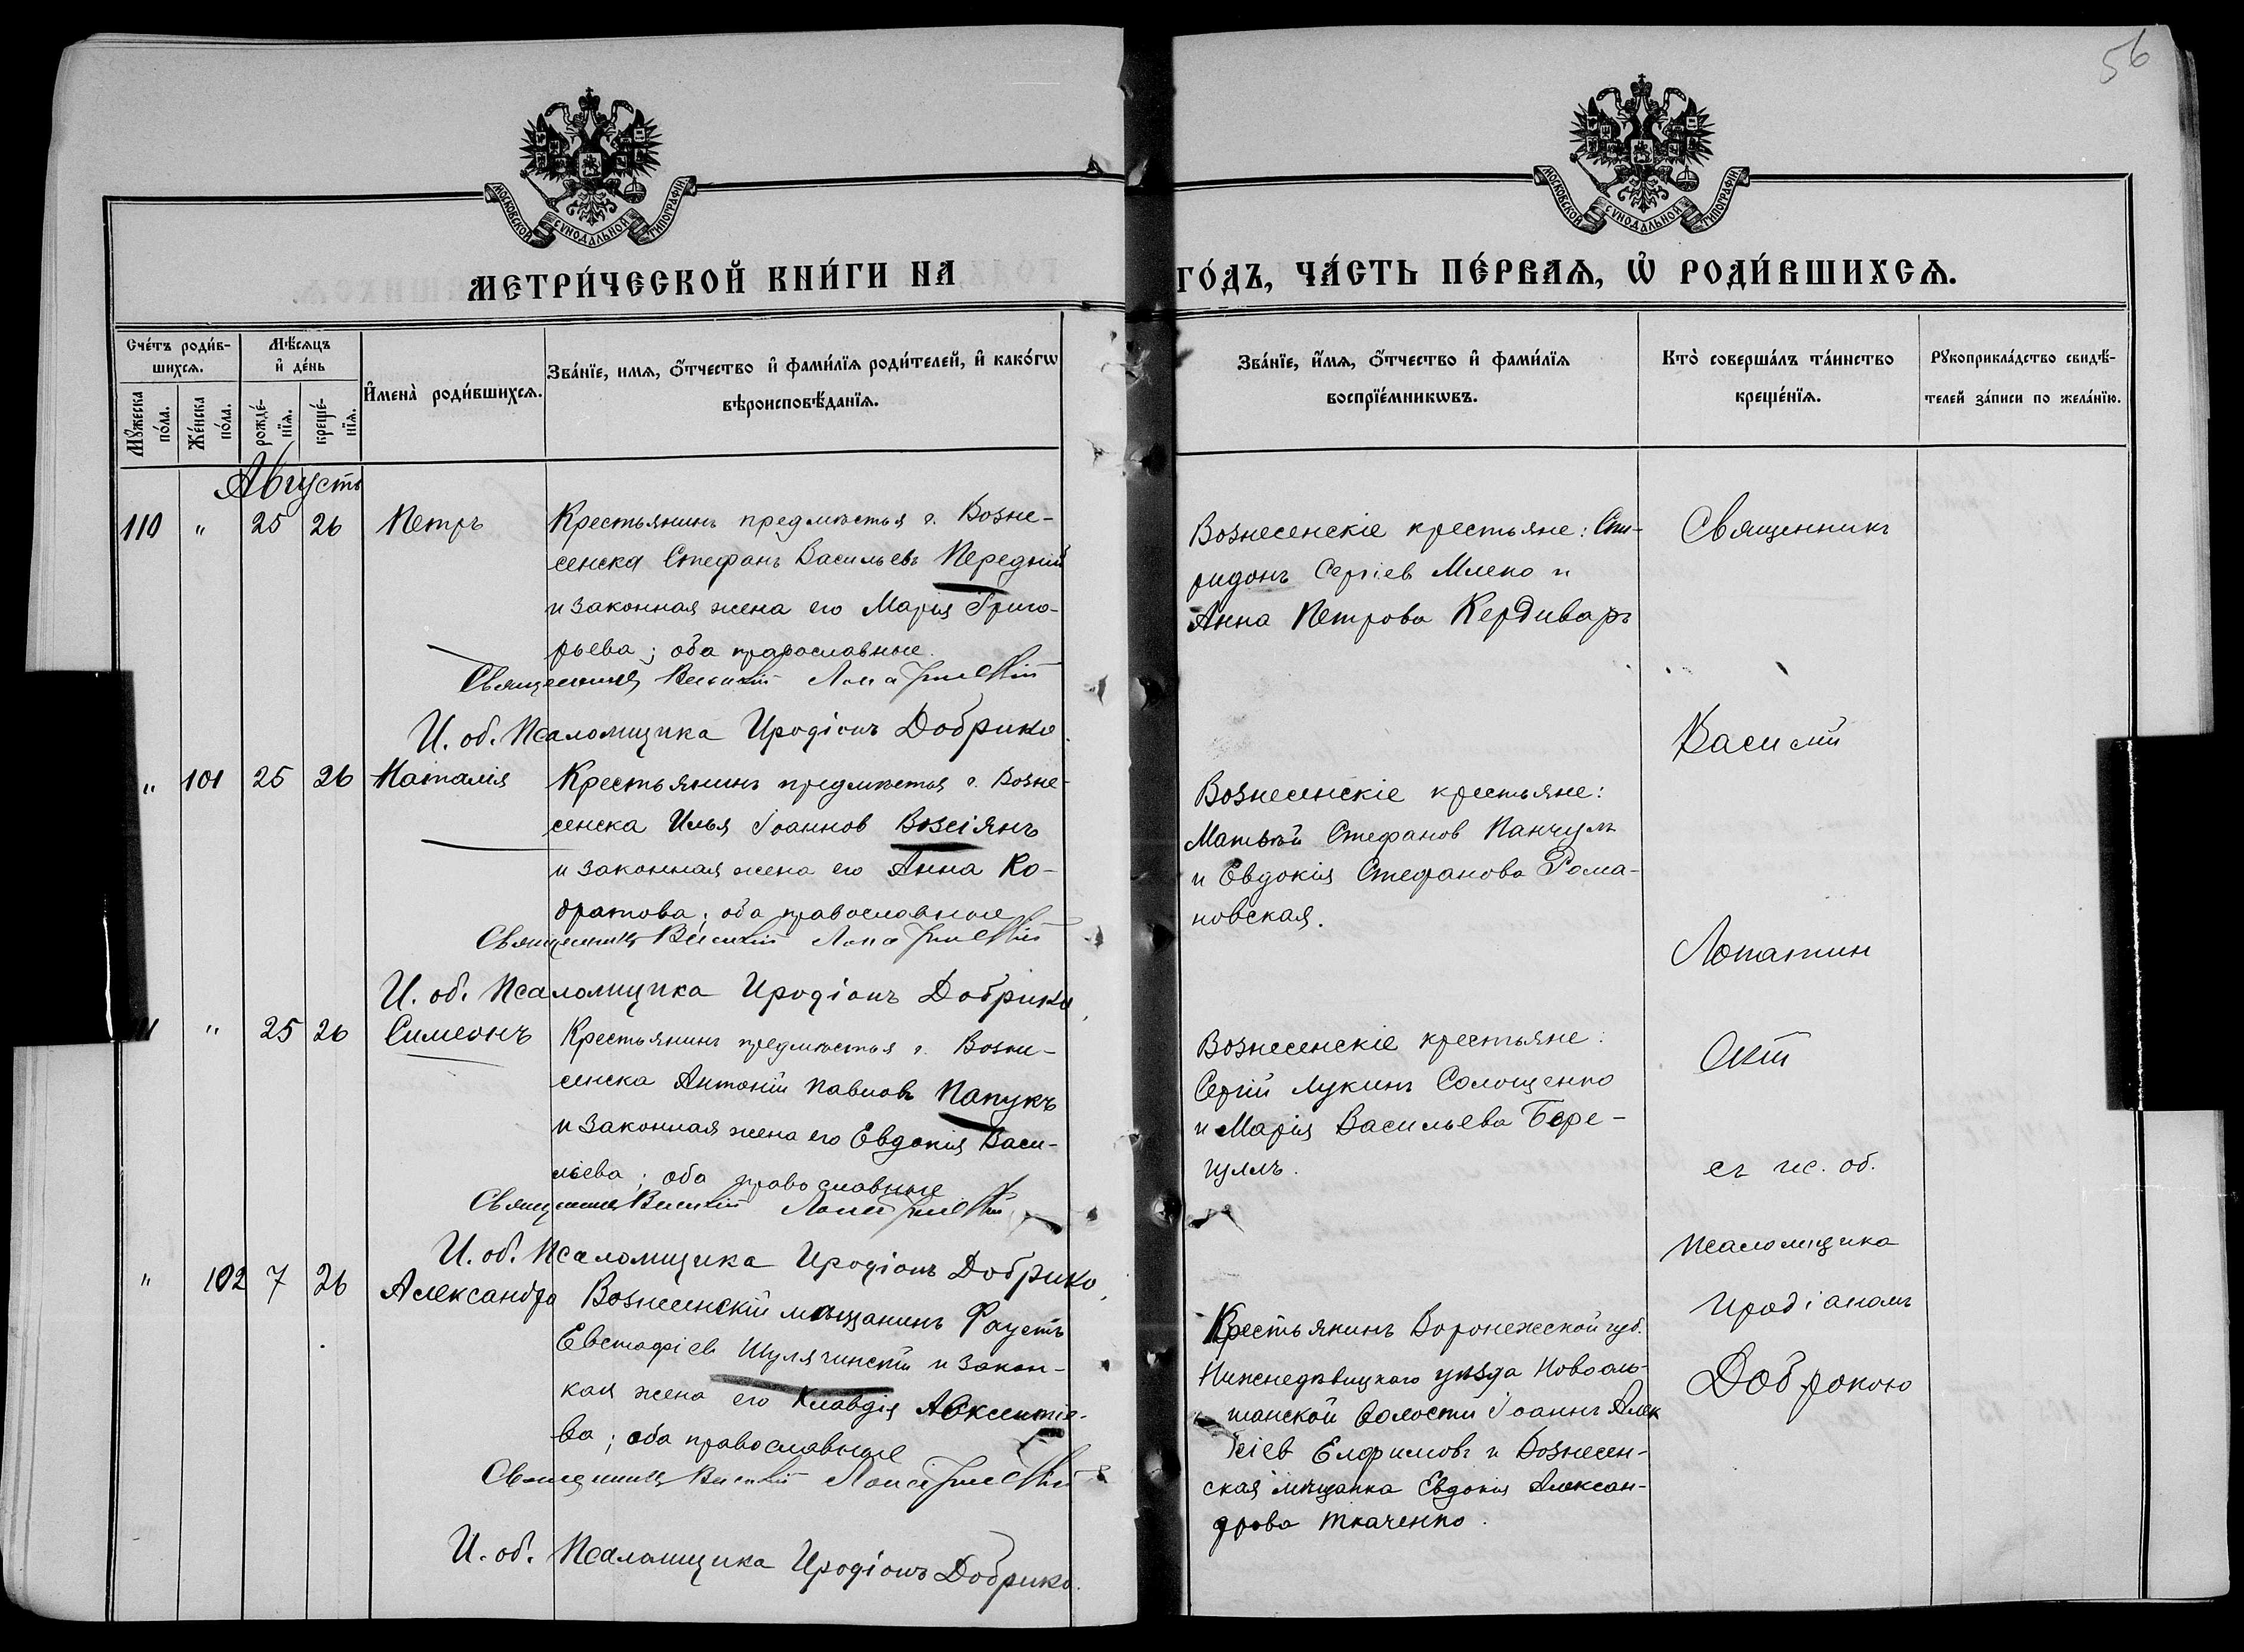 56
МОСКОВСКОЙ СѴНОДАЛЬНОЙ ТИПОГРАФІИ
МОСКОВСКОЙ СѴНОДАЛЬНОЙ ТИПОГРАФІИ
МЕТРИ́ЧЕСКОЙ КНИ́ГИ НА
ГО́ДЪ, ЧА́СТЬ ПЕ́РВАѦ, Ѡ҆ РОДИ́ВШИХСѦ.
Сче́тъ роди́в-
шихсѧ.
Мꙋ́жеска по́ла.
Же́нска по́ла.
Мѣ́сѧцъ
и҆ де́нь
рожде́-
нїѧ.
креще́-
нїѧ.
И҆мена̀ роди́вшихсѧ.
Зва́нїе, имѧ, ѻ҆́тчество и҆ фами́лїѧ роди́телей, и҆ како́гѡ
вѣроисповѣ́данїѧ.
Зва́нїе, и҆́мѧ, ѻ҆́тчество и҆ фами́лїѧ
воспрїе́мникѡвъ.
Кто̀ соверша́лъ та́инство
креще́нїѧ.
Рꙋкоприкла́дство свидѣ́-
телей за́писи по жела́нїю.
Августъ
110 " 25 26 Петръ
Крестьянинъ предмѣстья г. Возне-
сенска Стефанъ Васильевъ Передній
и законная жена его Марія Григо-
рьева; оба православные.
Священникъ Василій Лопатинскій
И. об. Псаломщика Иродіонъ Добрико.
Вознесенскіе крестьяне: Спи-
ридонъ Сергіев Млеко и
Анна Петрова Кердиваръ
" 101 25 26 Наталія
Крестьянинъ предмѣстья г. Возне-
сенска Илья Іоаннов Возсіянъ
и законная жена его Анна Ко-
дратова; оба православные
Священникъ Василій Лопатинскій
И. об. Псаломщика Иродіонъ Добрико.
Вознесенскіе крестьяне:
Матвѣй Стефанов Панчулъ
и Евдокія Стефанова Рома-
новская.
" 25 26 Симеонъ
Крестьянинъ предмѣстья г. Возне-
сенска Антоній Павловъ Папукъ
и законная жена его Евдокія Васи-
льева; оба православные
Священникъ Василій Лопатинскій
И. об. Псаломщика Иродіонъ Добрико.
Вознесенскіе крестьяне:
Сергій Лукинъ Солощенко
и Марія Васильева Бере-
гулъ.
" 102 7 26 Александра
Вознесенскій мѣщанинъ Фаустъ
Евстафіев Шулячинскій и закон-
ная жена его Клавдія Авксентіе-
ва; оба православные
Священникъ Василій Лопатинскій
И. об. Псаломщика Иродіонъ Добрико.
Крестьянинъ Воронежской губ.
Нижнедѣвицкаго уѣзда Новооль-
шанской волости Іоаннъ Алек
сіев Елфимовъ и Вознесен-
ская мѣщанка Евдокія Алексан-
дрова Ткаченко.
Священникъ
Василій
Лопатин
скій
съ ис. об.
псаломщика
Иродіаномъ
Доброкою